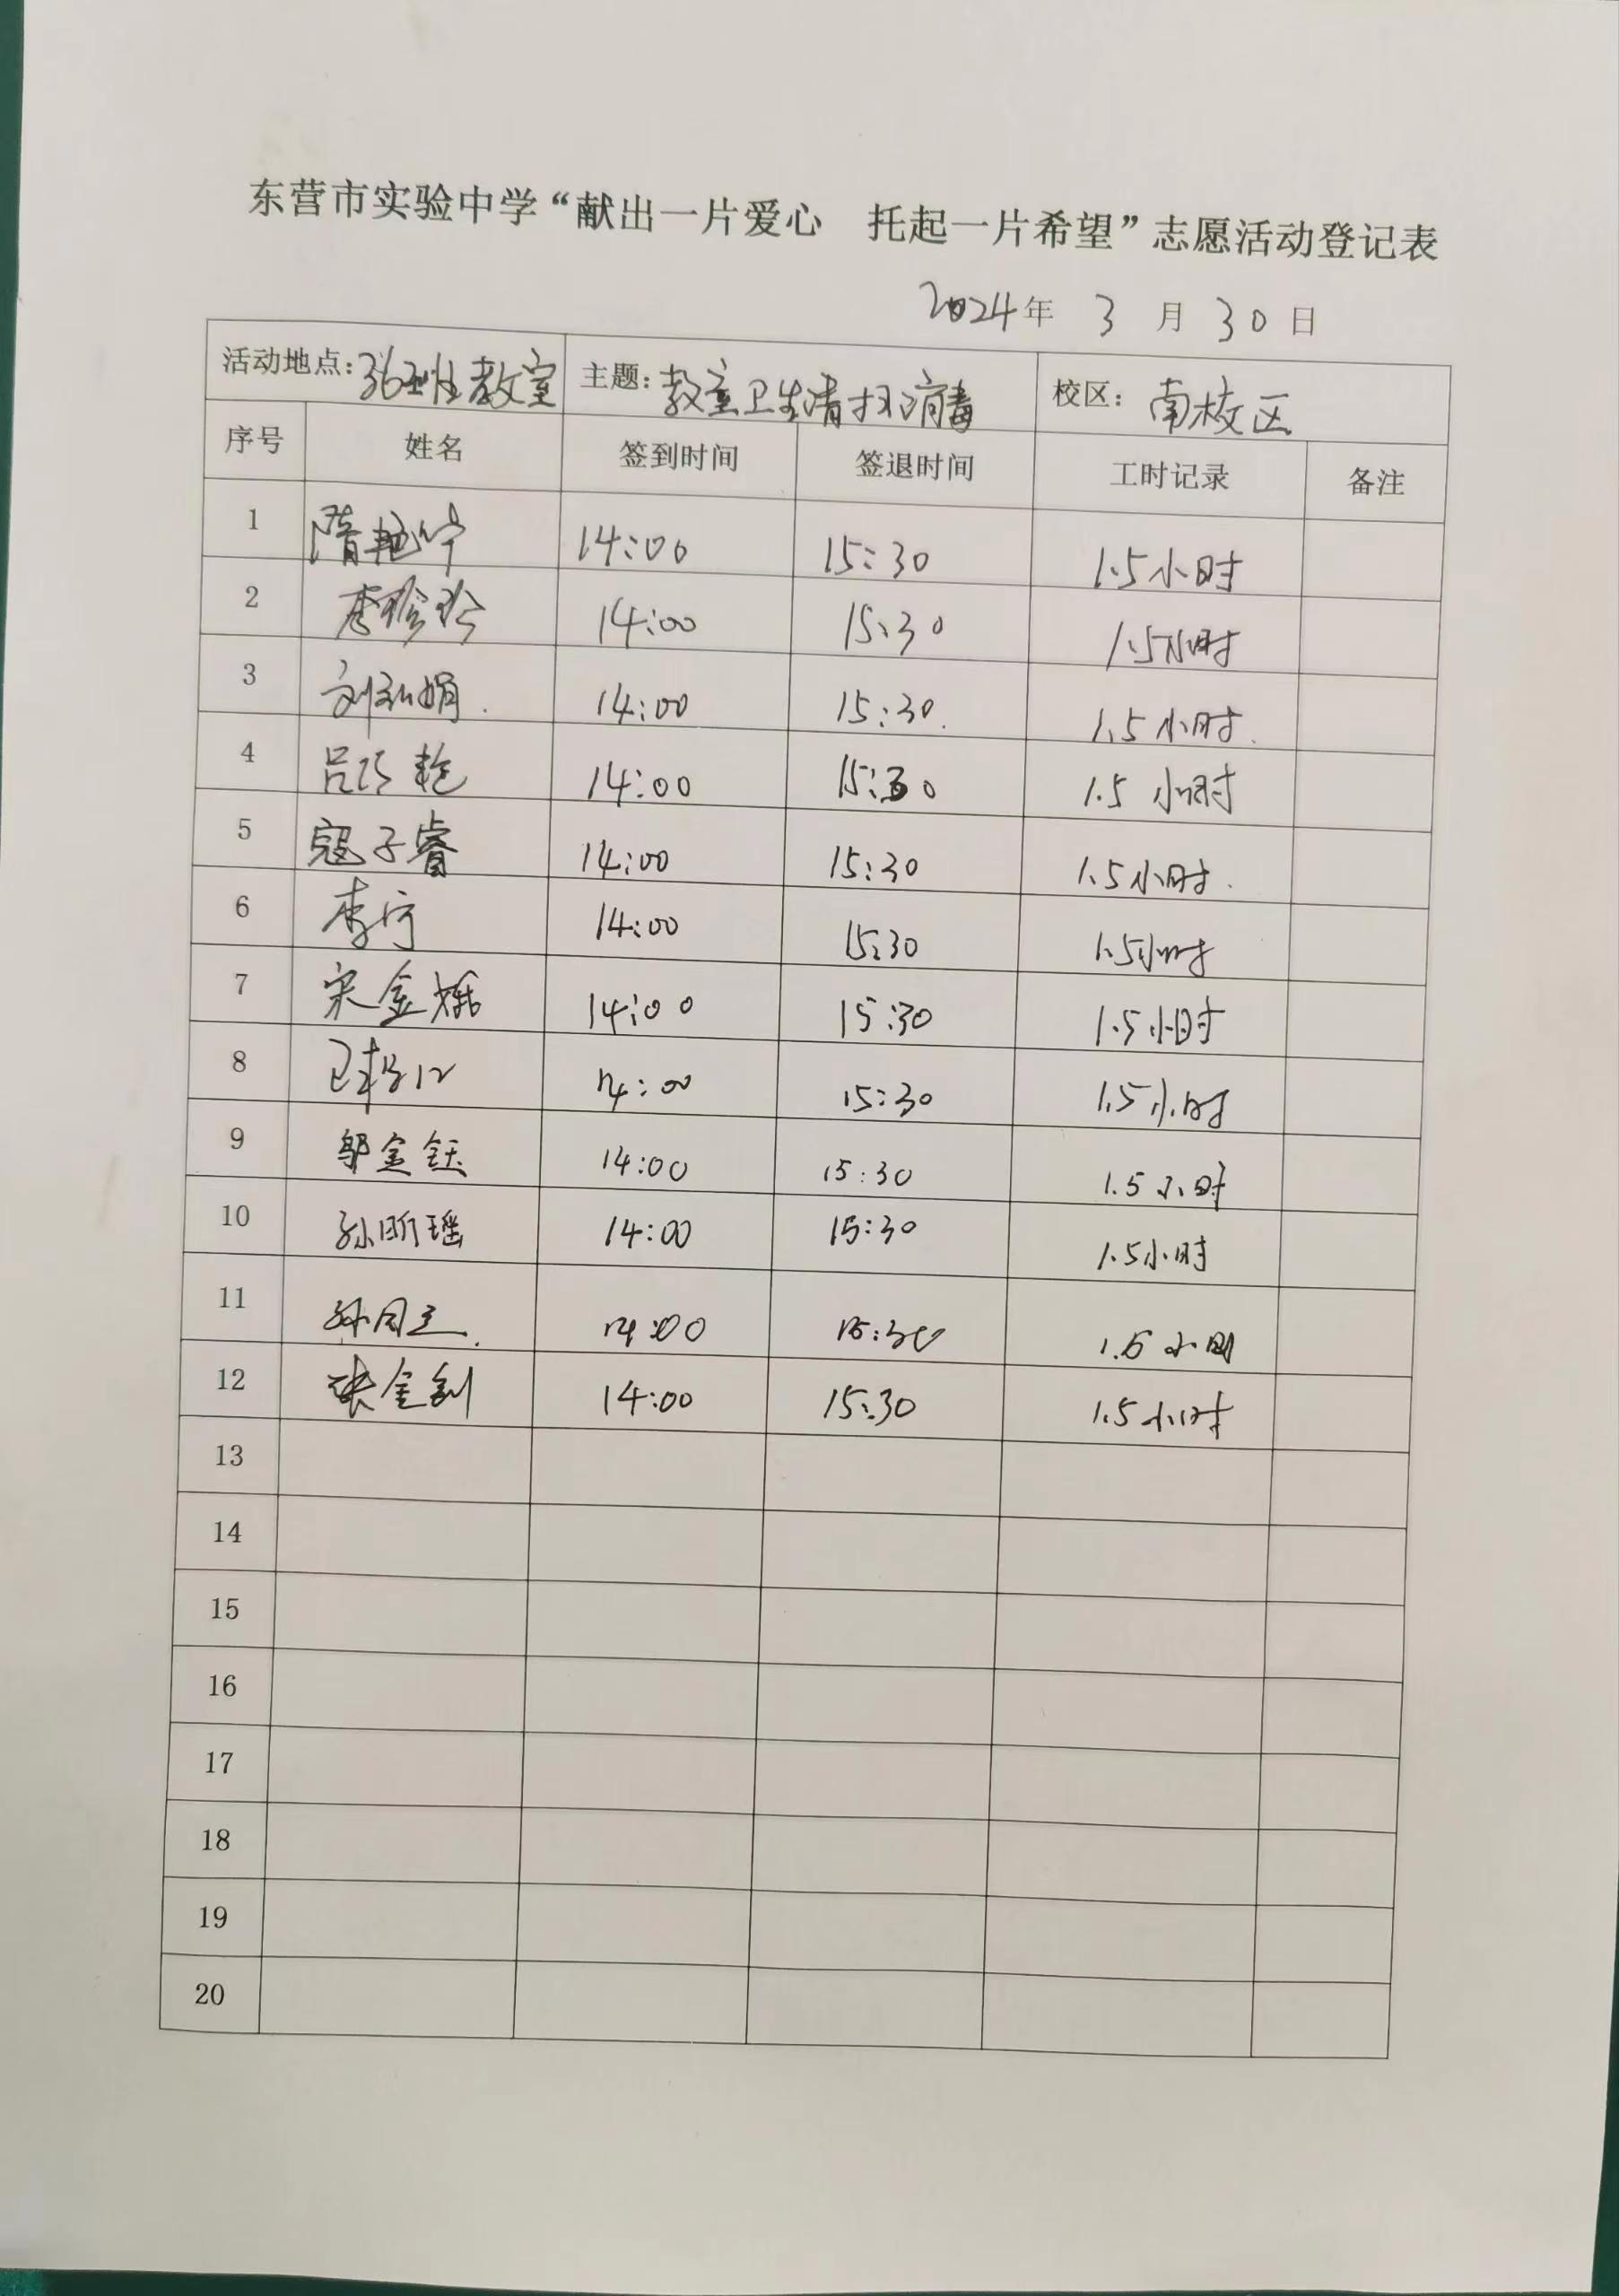 东营市实验中学“献出一片爱心 托起一片希望”志愿活动登记表
2024年 3 月 30 日
活动地点: 教室 主题: 教室卫生清扫消毒 校区: 南校区
序号 姓名 签到时间 签退时间 工时记录 备注
1 隋艳宁 14:00 15:30 1.5小时
2 李珍珍 14:00 15:30 1.5小时
3 刘弘娟. 14:00 15:30. 1.5小时.
4 吕巧艳 14:00 15:30 1.5小时
5 寇子睿 14:00 15:30 1.5小时.
6 李宁 14:00 15:30 1.5小时
7 宋金娥 14:00 15:30 1.5小时
8 14:00 15:30 1.5小时
9 邬金钰 14:00 15:30 1.5小时
10 孙昕瑶 14:00 15:30 1.5小时
11 14:00 15:30 1.5小时
12 张金钊 14:00 15:30 1.5小时
13
14
15
16
17
18
19
20